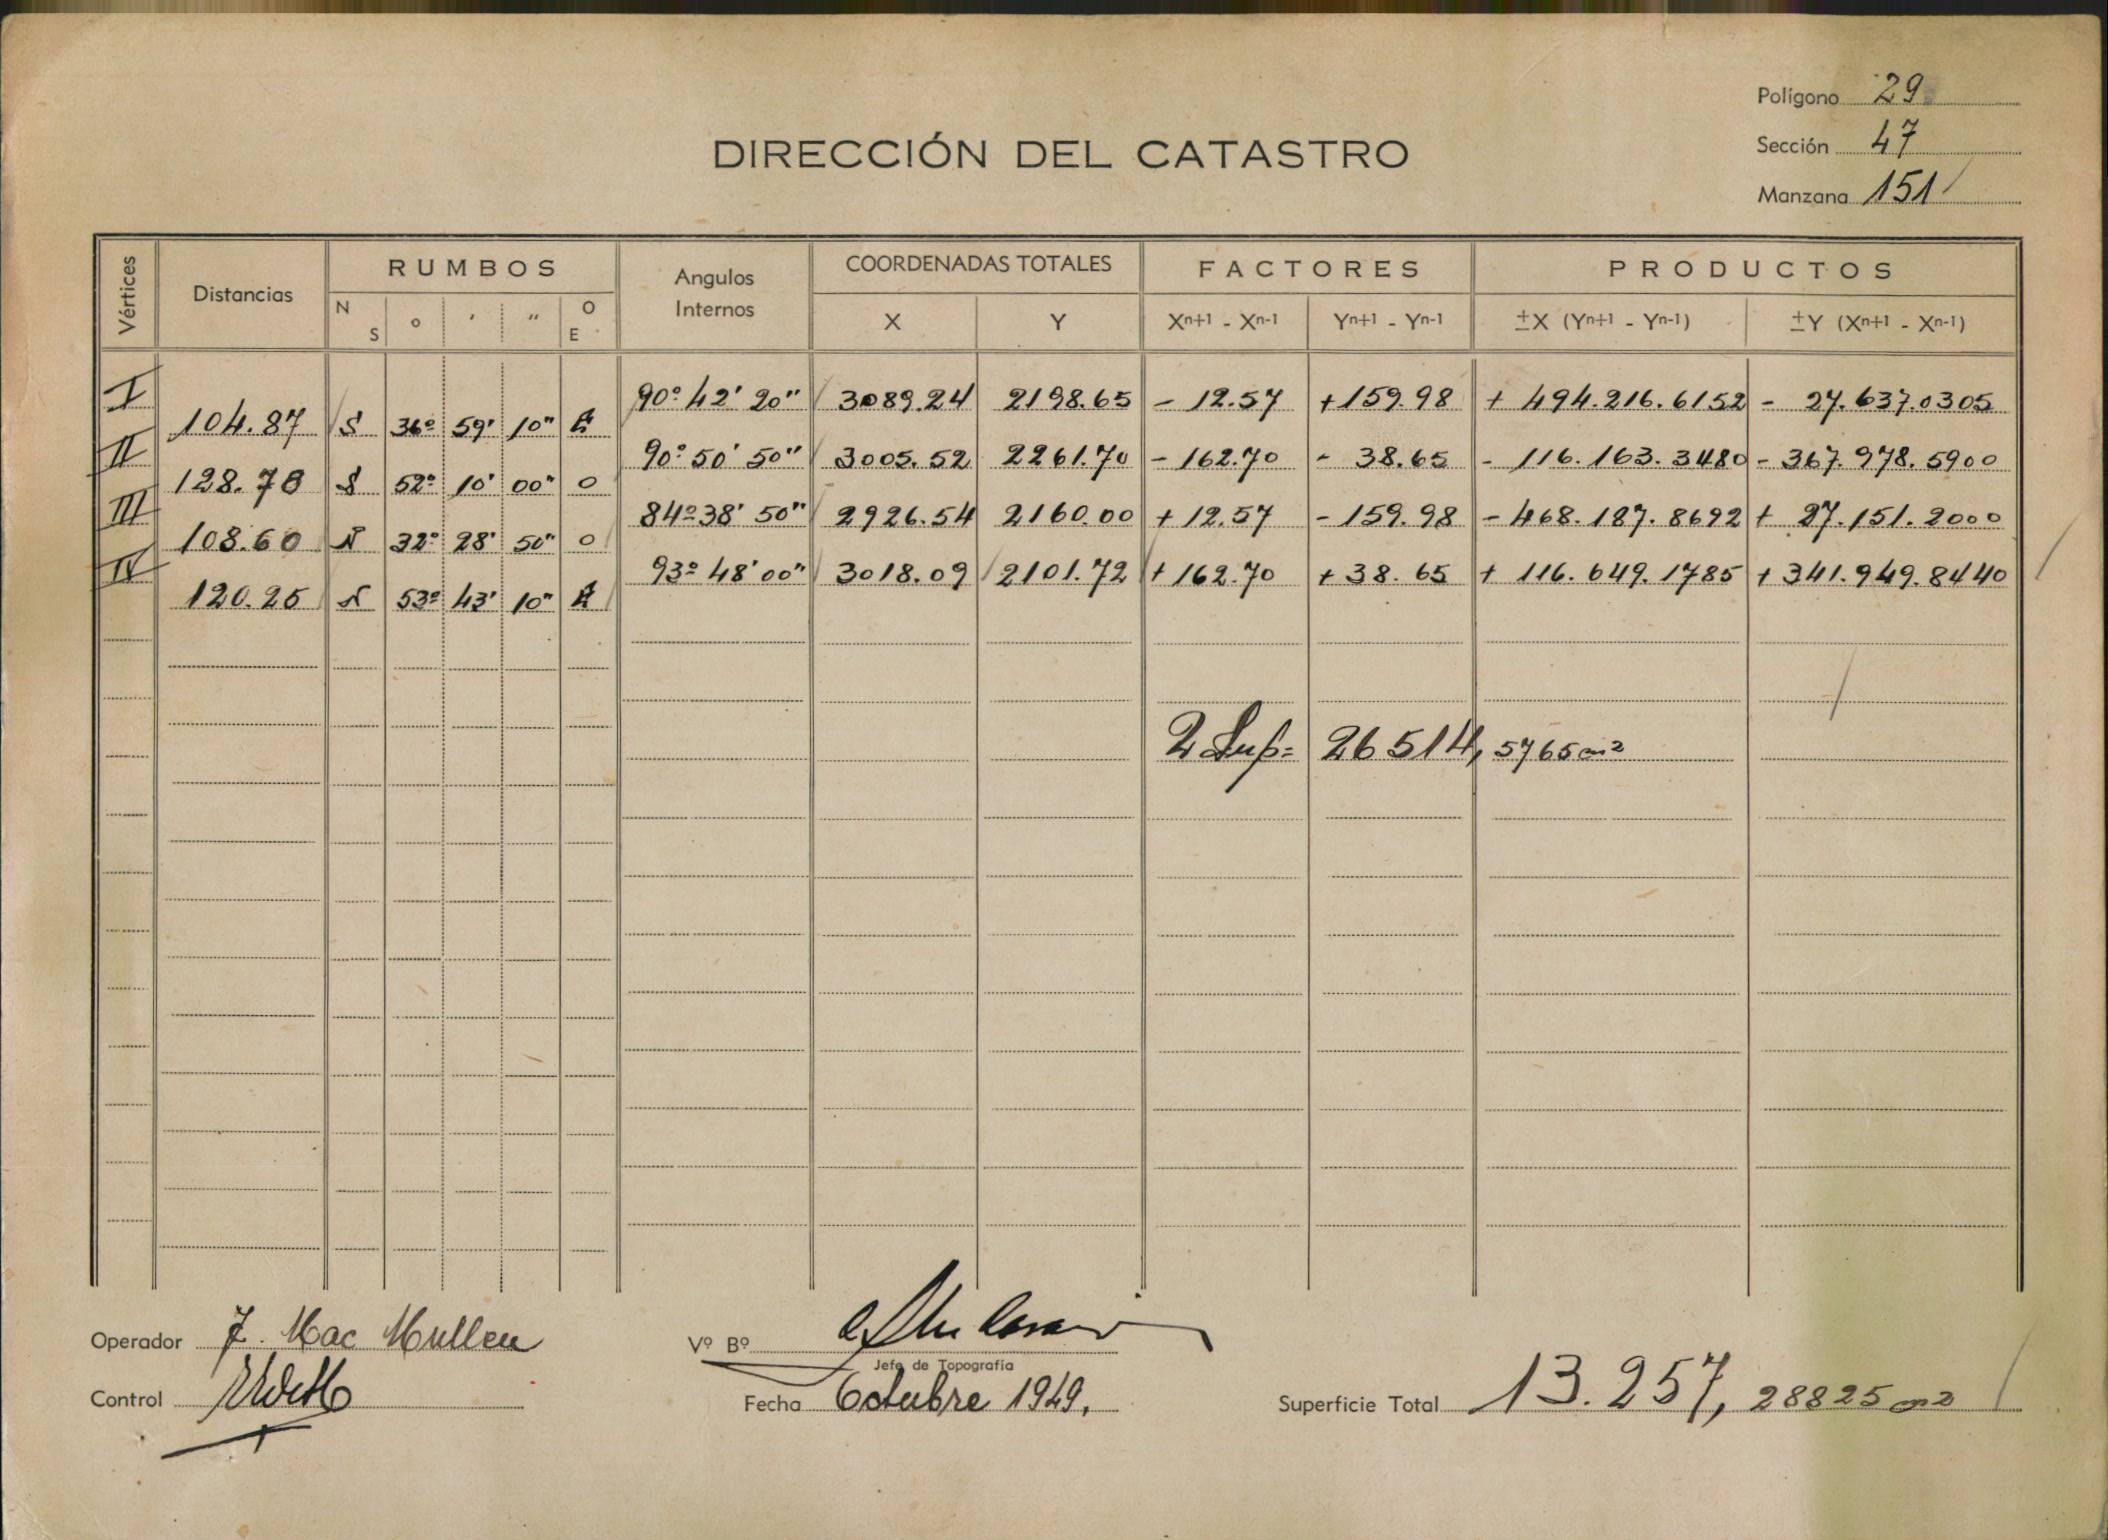 Polígono 29
Sección 47
Manzana 151
DIRECCIÓN DEL CATASTRO
Vértices Distancias RUMBOS Angulos Internos COORDENADAS TOTALES FACTORES PRODUCTOS
N S ° ' " O E X Y Xn+1 - Xn-1 Yn+1 - Yn-1 ±X (Yn+1 - Yn-1) ±Y (Xn+1 - Xn-1)
I 90º 42' 20" 3089.24 2198.65 - 12.57 +159.98 + 494.216.6152 - 27.637.0305
104.87 S 36º 59' 10" E
II 90º 50' 50" 3005.52 2261.70 - 162.70 - 38.65 - 116.163.3480 - 367.978.5900
128.78 S 52º 10' 00" O
III 84º 38' 50" 2926.54 2160.00 + 12.57 - 159.98 - 468.187.8692 + 27.151.2000
108.60 N 32º 28' 50" O
IV 93º 48' 00" 3018.09 2101.72 + 162.70 + 38.65 + 116.649.1785 + 341.949.8440
120.25 N 53º 43' 10" E
2 Sup= 26514,5765 m2
Operador F. Mac Mullen
Vº Bº
Jefe de Topografía
Control
Fecha Octubre 1949.
Superficie Total 13.257,28825 m2